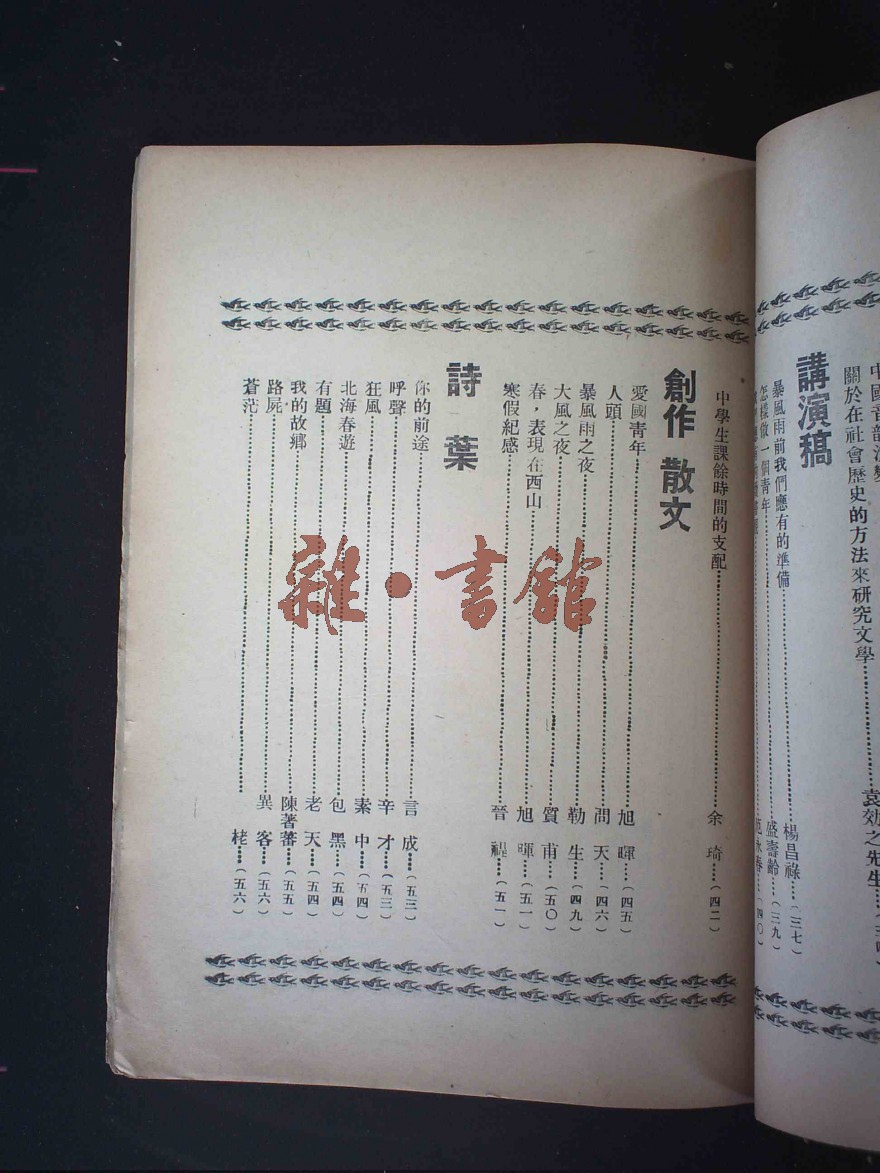 關於在社會歷史的方法來研究文學……袁効之先生
講演稿
暴風雨前我們應有的準備……楊昌祿……(三七)
怎樣做一個青年……盛壽齡……(三九)
中學生課餘時間的支配……余琦……(四二)
創作 散文
愛國青年……旭暉……(四五)
人頭……問天……(四六)
暴風雨之夜……勒生……(四九)
大風之夜……質甫……(五〇)
春，表現在西山……旭暉……(五一)
寒假紀感……晉禔……(五一)
詩葉
你的前途……言成……(五三)
呼聲……辛才……(五三)
狂風……素中……(五四)
北海春遊……包黑……(五四)
有題……老天……(五四)
我的故鄉……陳著蕃……(五五)
路屍……異客……(五六)
蒼茫……栳……(五六)
雜·書館